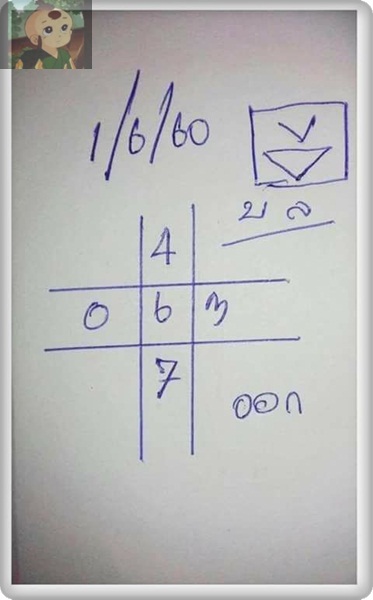 1/6/60
บ ล
4
0 6 3
7
ออก